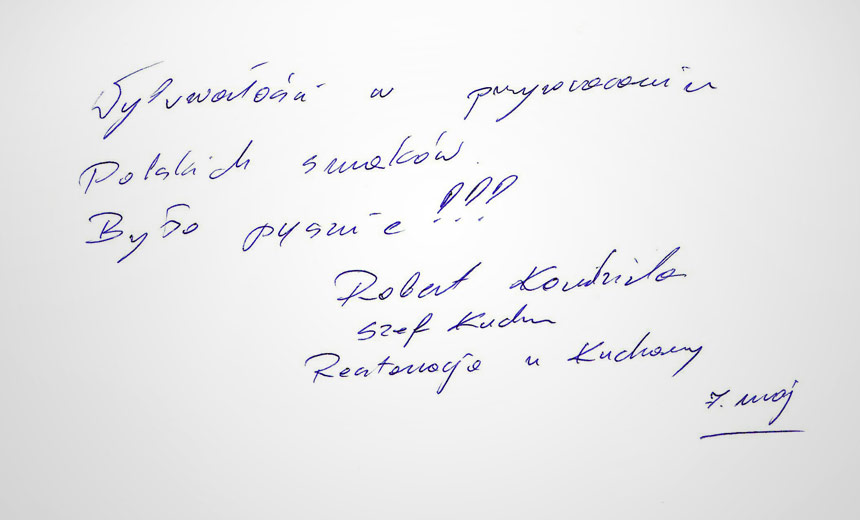 Wytrwałości w przywracaniu
Polskich smaków.
Było pysznie!!!
Robert
szef Kuchni
Restauracja u Kucharzy
7. maj